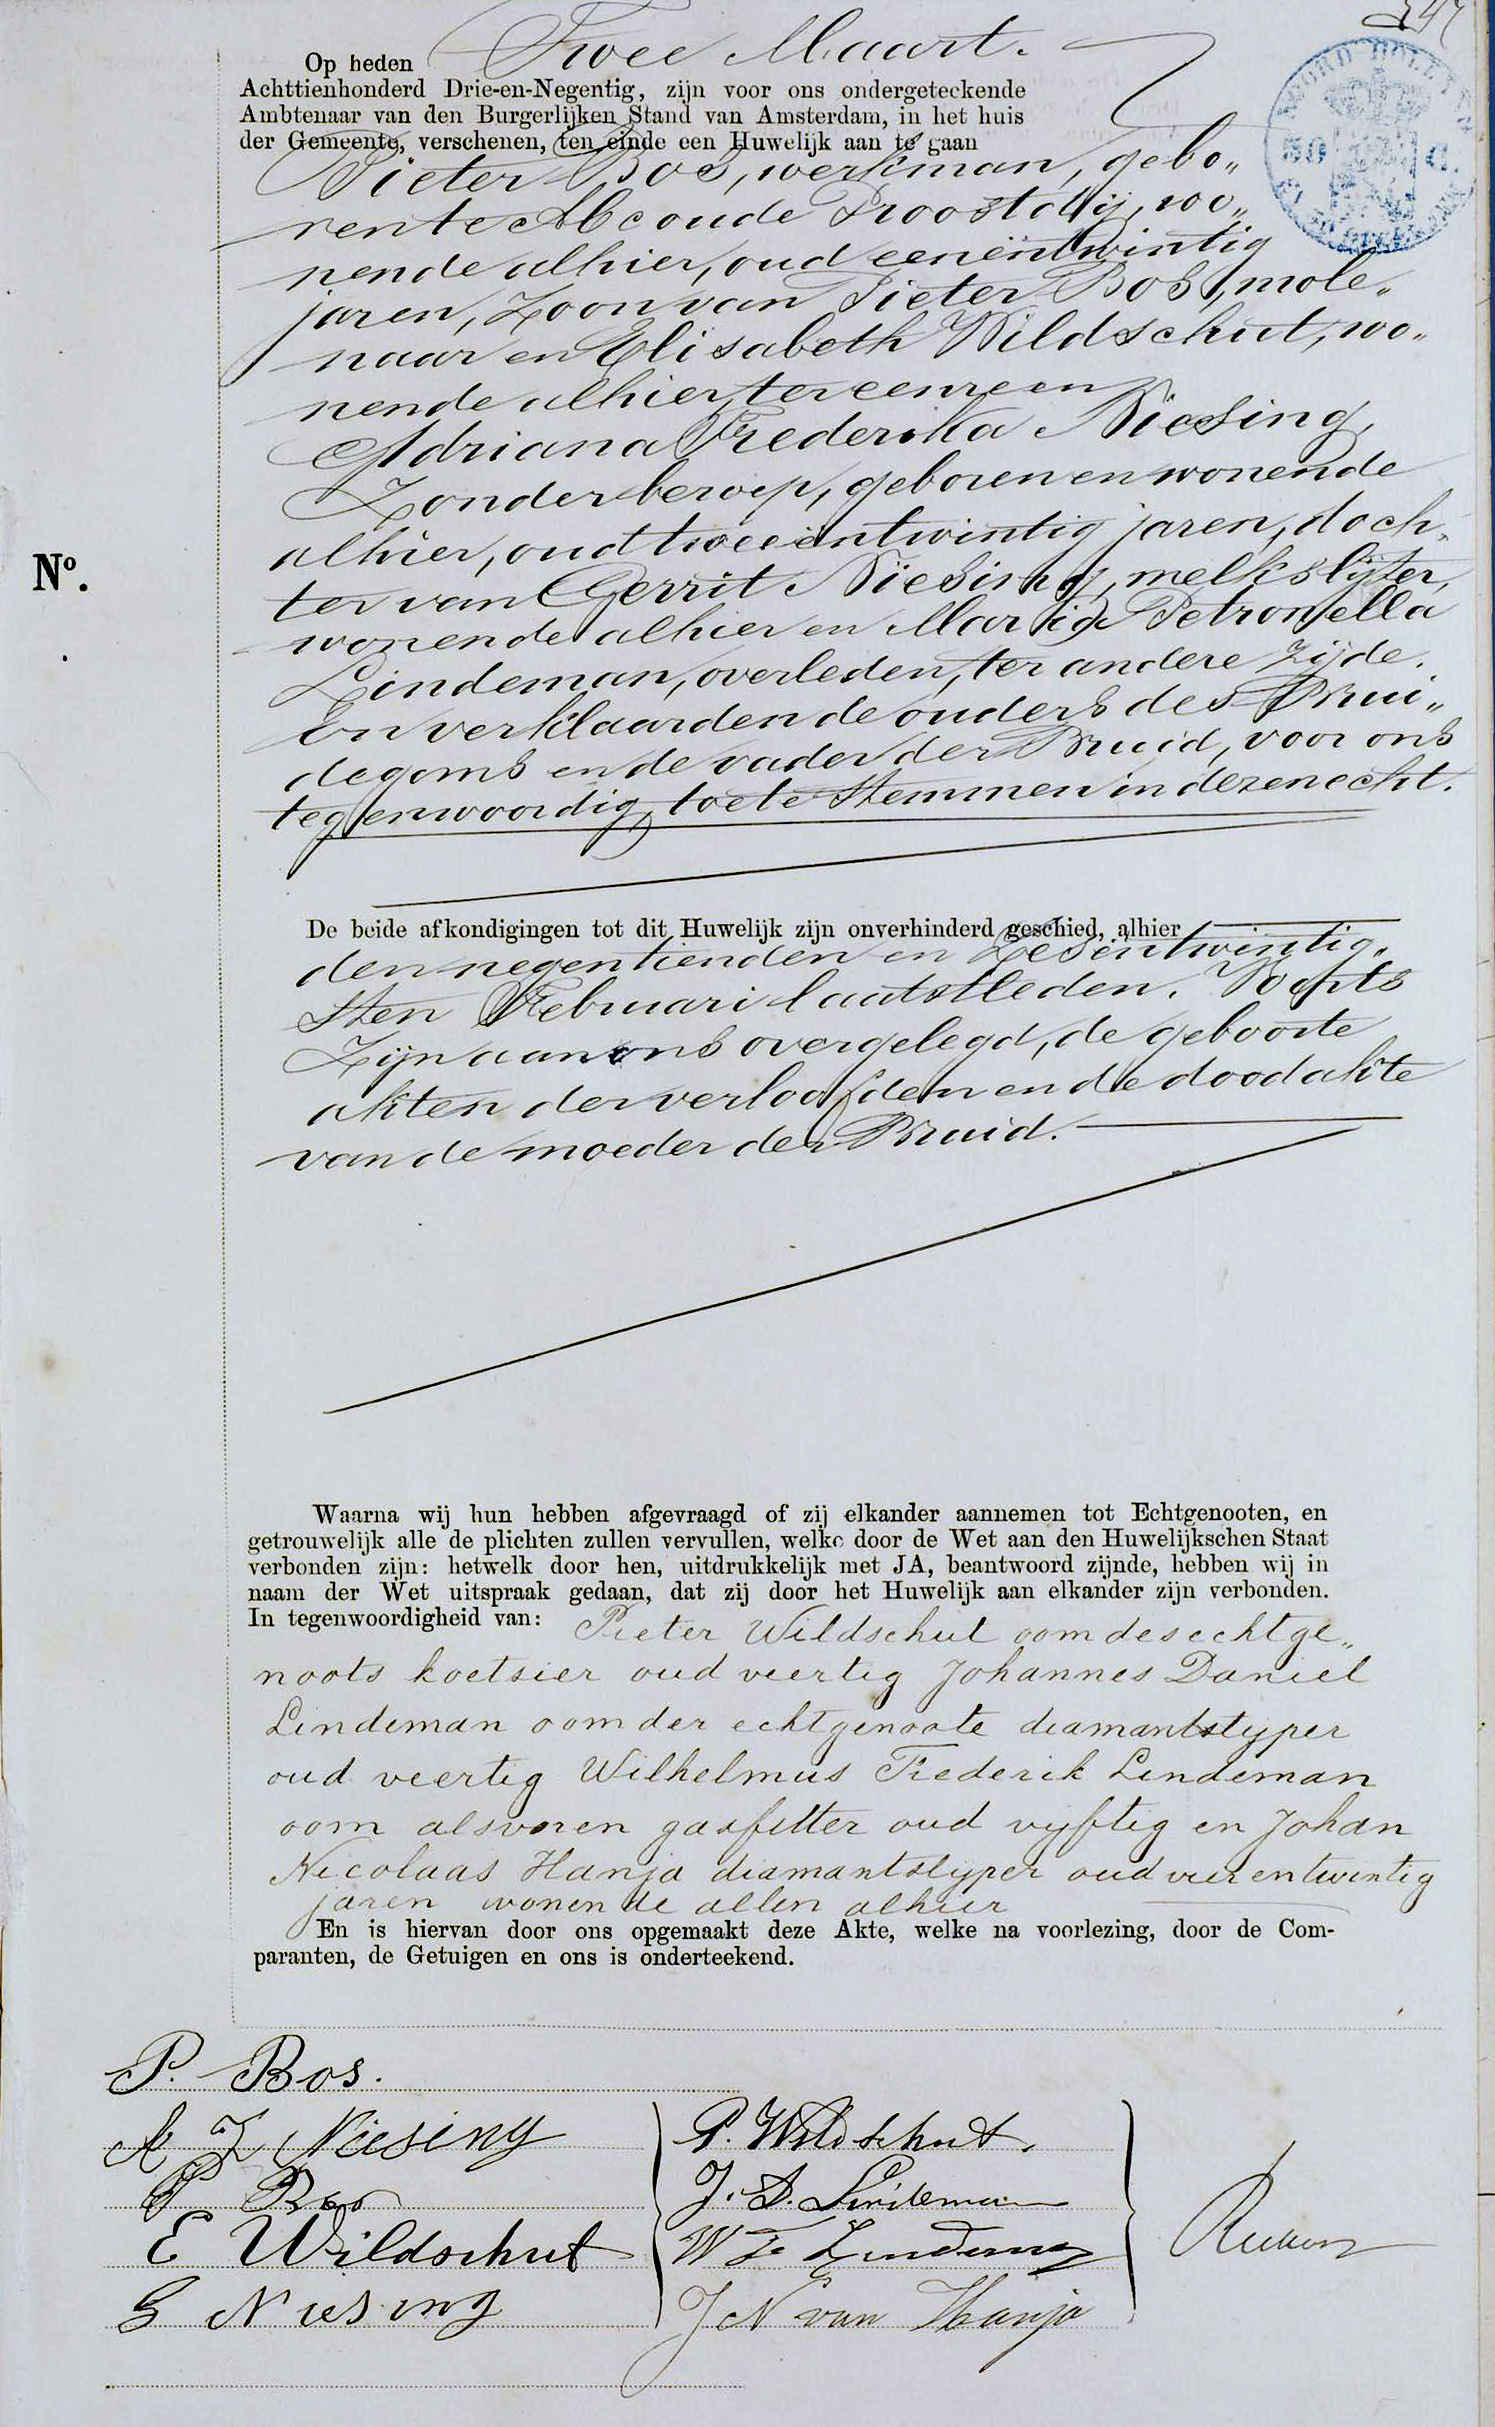 Op heden Twee Maart.
Achttienhonderd Drie-en-Negentig, zijn voor ons ondergeteekende
Ambtenaar van den Burgerlijken Stand van Amsterdam, in het huis
der Gemeente, verschenen, ten einde een Huwelijk aan te gaan
Pieter Bos, werkman, gebo„
ren te Abcoude Proostdij, wo„
nende alhier, oud eenentwintig
jaren, Zoon van Pieter Bos, mole„
naar en Elisabeth Wildschut, wo„
nende alhier, ter eenre en
Adriana Frederika Niesing,
Zonder beroep, geboren en wonende
alhier, oud tweeentwintig jaren, doch„
ter van Gerrit Niesing, melkslijter,
wonende alhier en Maria Petronella
Lindeman, overleden, ter andere Zijde.
En verklaarden de ouders des Brui„
degoms en de vader der Bruid, voor ons
tegenwoordig, toe te Stemmen in dezen echt.
De beide afkondigingen tot dit Huwelijk zijn onverhinderd geschied, alhier
den negentienden en Zesentwintig„
sten Februari laatstleden. Voorts
Zijn aan ons overgelegd, de geboorte
akten der verloofden en de doodakte
van de moeder der Bruid.
No.
Waarna wij hun hebben afgevraagd of zij elkander aannemen tot Echtgenooten, en
getrouwelijk alle de plichten zullen vervullen, welke door de Wet aan den Huwelijkschen Staat
verbonden zijn: hetwelk door hen, uitdrukkelijk met JA, beantwoord zijnde, hebben wij in
naam der Wet uitspraak gedaan, dat zij door het Huwelijk aan elkander zijn verbonden.
In tegenwoordigheid van: Pieter Wildschut oom des echtge„
noots koetsier oud veertig Johannes Daniel
Lindeman oom der echtgenoote diamantslijper
oud veertig Wilhelmus Frederik Lindeman
oom alsvoren gasfitter oud vijftig en Johan
Nicolaas Hanja diamantslijper oud vierentwintig
jaren wonende allen alhier
En is hiervan door ons opgemaakt deze Akte, welke na voorlezing, door de Com-
paranten, de Getuigen en ons is onderteekend.
P. Bos.
A F Niesing
P Bos
E Wildschut
G Niesing
P. Wildschut.
J. D. Lindeman
W F Lindeman
J N van Hanja